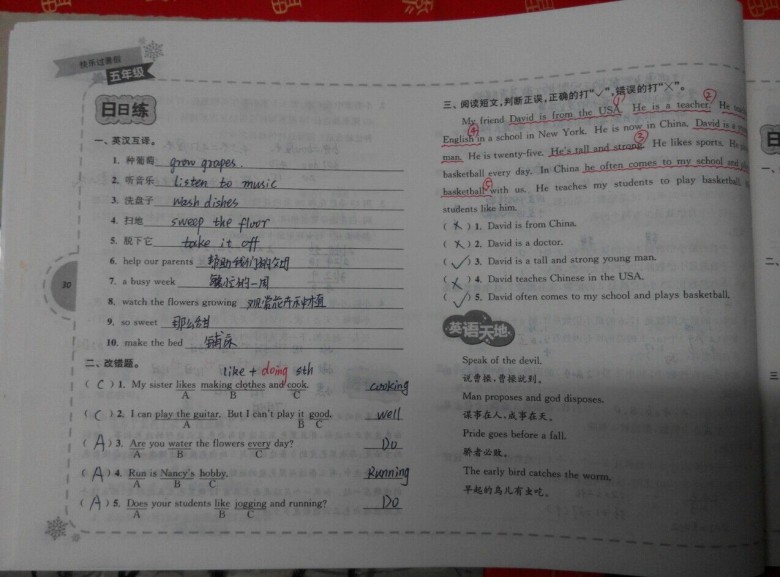 快乐过暑假
五年级
日日练
一、英汉互译。
1. 种葡萄 grow grapes.
2. 听音乐 Listen to music
3. 洗盘子 wash dishes
4. 扫地 sweep the floor
5. 脱下它 take it off
6. help our parents 帮助我们的父母
7. a busy week 繁忙的一周
8. watch the flowers growing 观赏花卉种植
9. so sweet 那么甜
10. make the bed 铺床
二、改错题。
like + doing sth
( C ) 1. My sister likes making clothes and cook. cooking
A B C
( C ) 2. I can play the guitar. But I can't play it good. well
A B C
( A ) 3. Are you water the flowers every day? Do
A B C
( A ) 4. Run is Nancy's hobby. Running
A B C
( A ) 5. Does your students like jogging and running? Do
A B C
30
三、阅读短文,判断正误,正确的打“✓”,错误的打“×”。
My friend David is from the USA. He is a teacher. He
English in a school in New York. He is now in China. David is a
man. He is twenty-five. He's tall and strong. He likes sports. He
basketball every day. In China he often comes to my school and
basketball with us. He teaches my students to play basketball.
students like him.
( × ) 1. David is from China.
( × ) 2. David is a doctor.
( ✓ ) 3. David is a tall and strong young man.
( × ) 4. David teaches Chinese in the USA.
( ✓ ) 5. David often comes to my school and plays basketball.
英语天地
Speak of the devil.
说曹操,曹操就到。
Man proposes and god disposes.
谋事在人,成事在天。
Pride goes before a fall.
骄者必败。
The early bird catches the worm.
早起的鸟儿有虫吃。